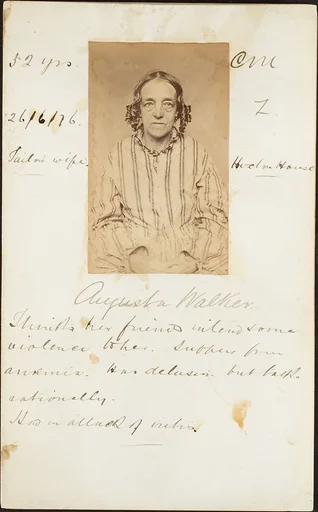 52 yrs.
CM
26/6/76.
Z.
wife.
House
Augusta Walker.
Thinks her friends intend some
violence to her. Suffers from
anæmia. Has delusion but talks
rationally.
Has an attack of